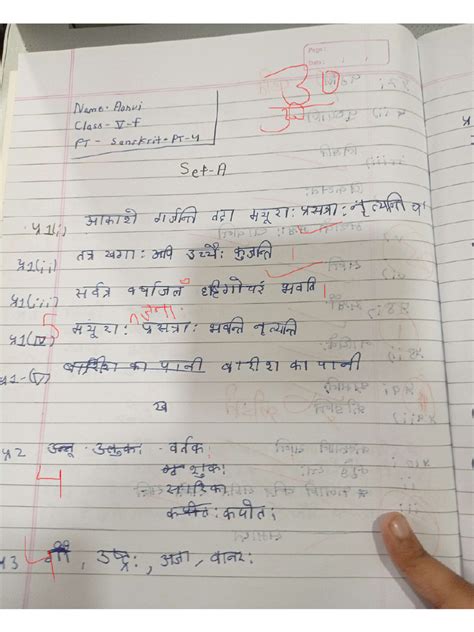 Page:
Date:
30
30
Name - Aanvi
Class - V-f
PT - Sanskrit - PT-4
Set-A
प्र1(i) आकाशे गर्जन्ति तदा मयूराः प्रसन्नाः नृत्यन्ति
प्र1(ii) तत्र खगाः अपि उच्चैः कुजन्ति
प्र1(iii) सर्वत्र वर्षाजलं दृष्टिगोचरं भवति
जनाः
5
प्र1(iv) मयूराः प्रसन्नाः भवन्ति नृत्यन्ति
प्र1-(v) बारिश का पानी बारीश का पानी
ख
प्र2 उल्लू - उलुकः वर्तकः
शुकः
4
सारिका
कपोतः कपोतः
प्र3 उष्ट्रः, अजा, वानरः
4